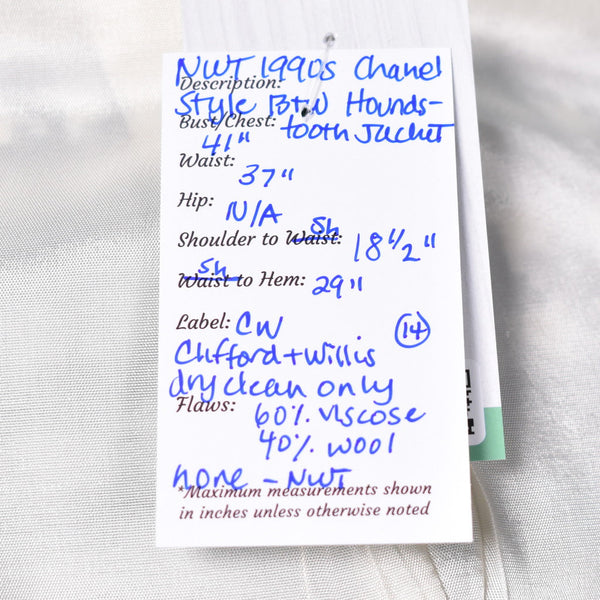 NWT 1990s Chanel
Description:
Style B+W Hounds-
Bust/Chest: tooth Jacket
41"
Waist:
37"
Hip:
N/A
Sh
Shoulder to Waist: 18 1/2"
Sh
Waist to Hem: 29"
Label: CW
14
Clifford + Willis
dry clean only
Flaws:
60% Viscose
40% Wool
none - NWT
*Maximum measurements shown
in inches unless otherwise noted